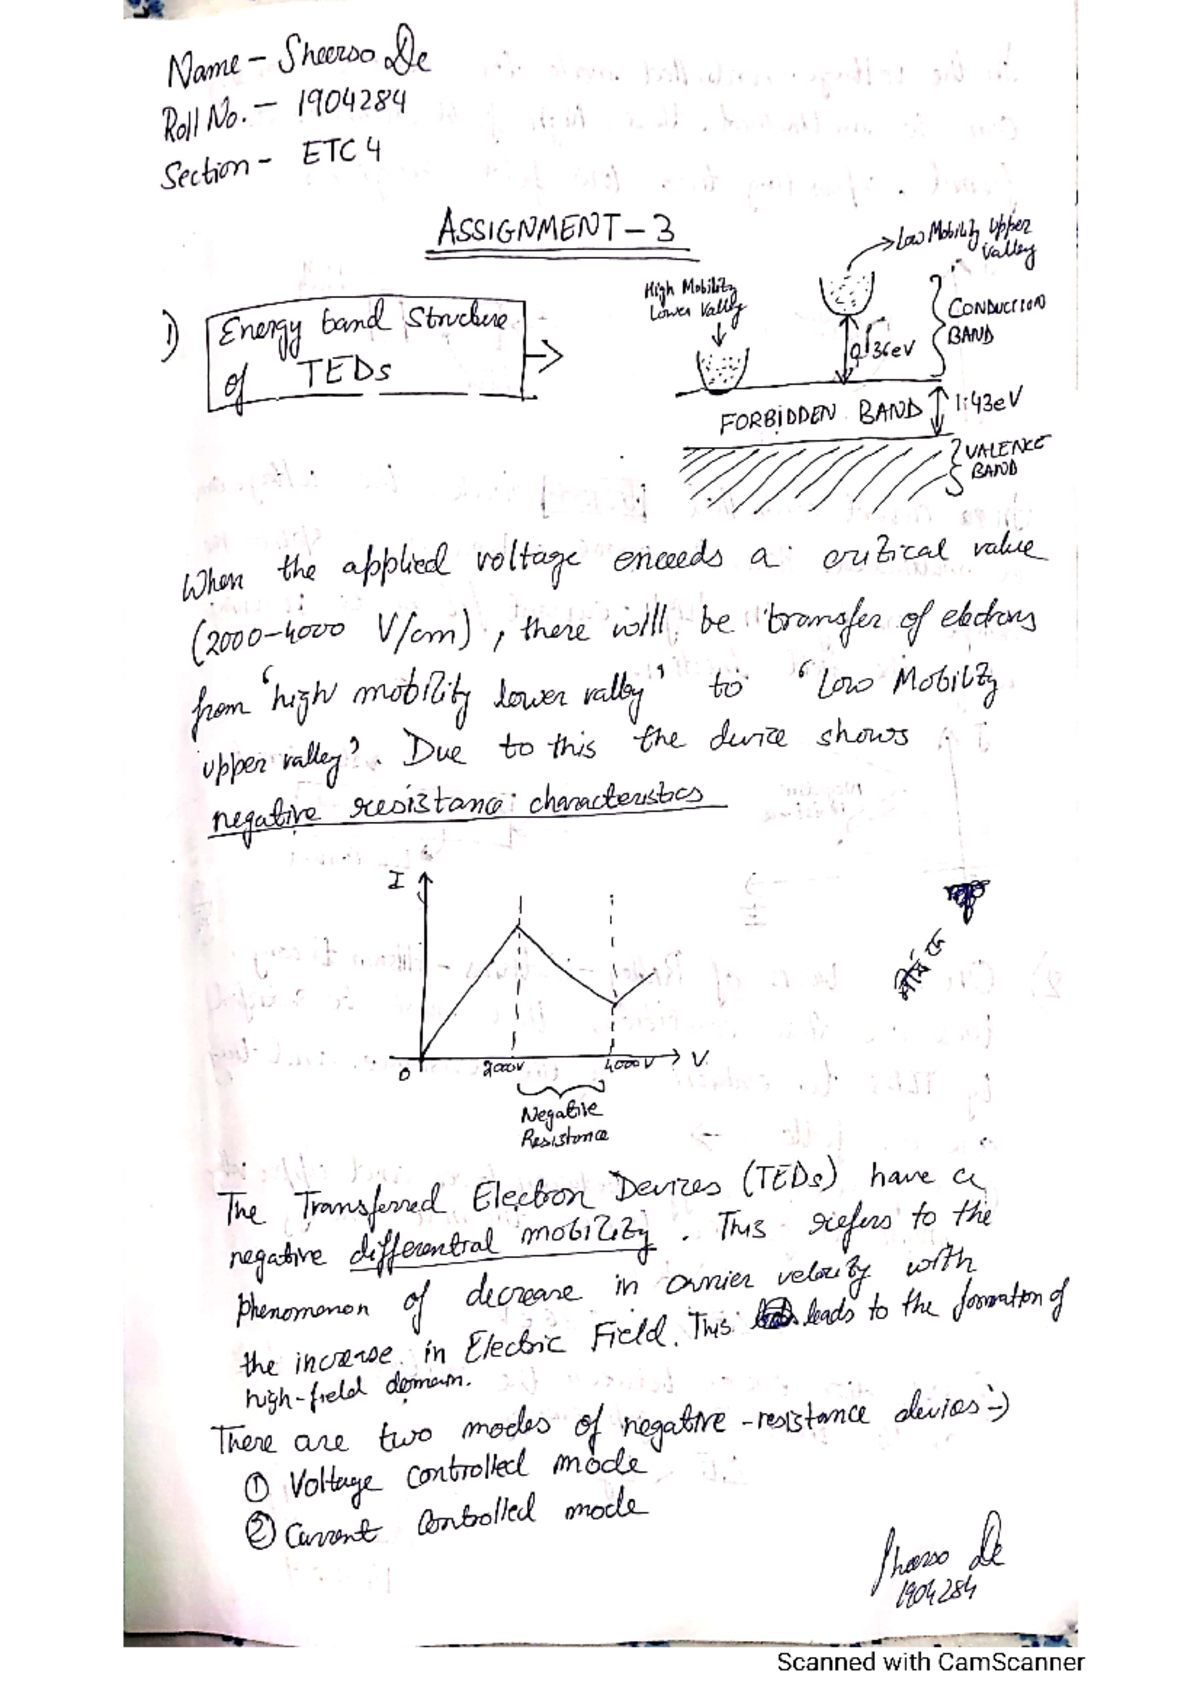 Name - Sheerso De
Roll No. - 1904284
Section - ETC 4
ASSIGNMENT - 3
1) Energy band Structure
of TEDs
High Mobility
Lower Valley
Low Mobility Upper
Valley
0.36eV
CONDUCTION
BAND
FORBIDDEN BAND
1.43eV
VALENCE
BAND
When the applied voltage exceeds a critical value
(2000-4000 V/cm), there will be transfer of electrons
from 'high mobility lower valley' to 'Low Mobility
upper valley'. Due to this the device shows
negative resistance characteristics
I
0
2000V
4000V
V
Negative
Resistance
The Transferred Electron Devices (TEDs) have a
negative differential mobility. This refers to the
phenomenon of decrease in carrier velocity with
the increase in Electric Field. This leads to the formation of
high-field domain.
There are two modes of negative-resistance devices :-)
① Voltage controlled mode
② Current controlled mode
Sheerso De
1904284
Scanned with CamScanner